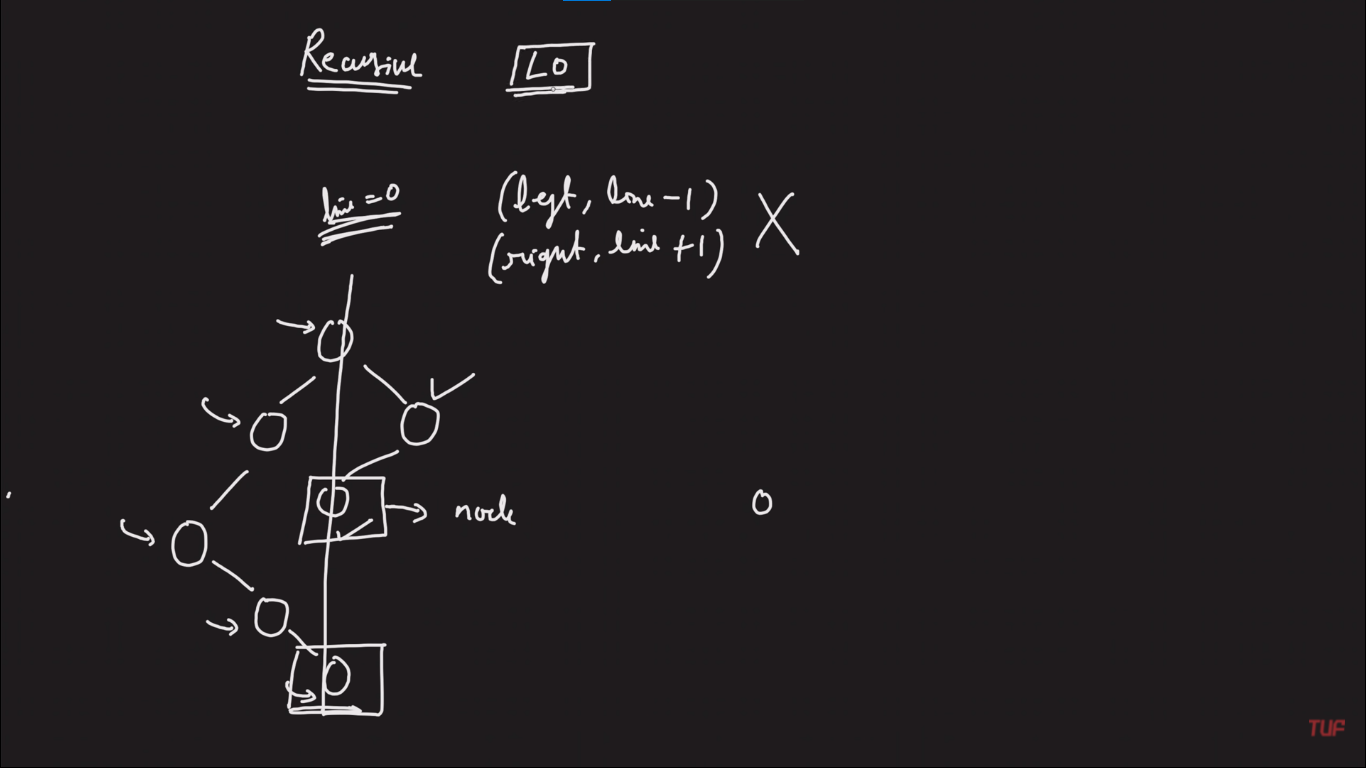 Recursive LO
line = 0
(left, line - 1) X
(right, line + 1)
node
O
TUF